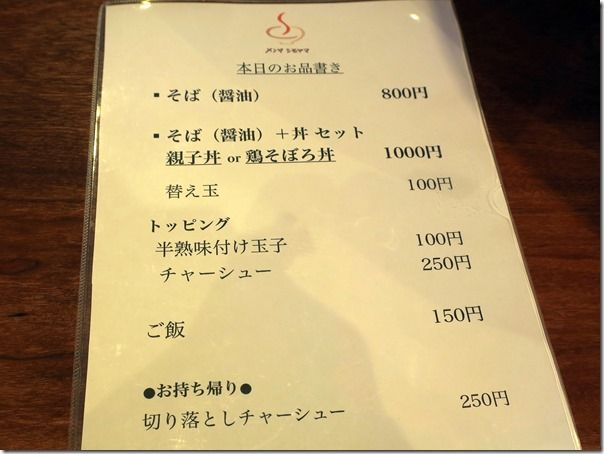 メンヤ シモヤマ
本日のお品書き
▪ そば（醤油） 800円
▪ そば（醤油）＋丼 セット
親子丼 or 鶏そぼろ丼 1000円
替え玉 100円
トッピング
半熟味付け玉子 100円
チャーシュー 250円
ご飯 150円
●お持ち帰り●
切り落としチャーシュー 250円